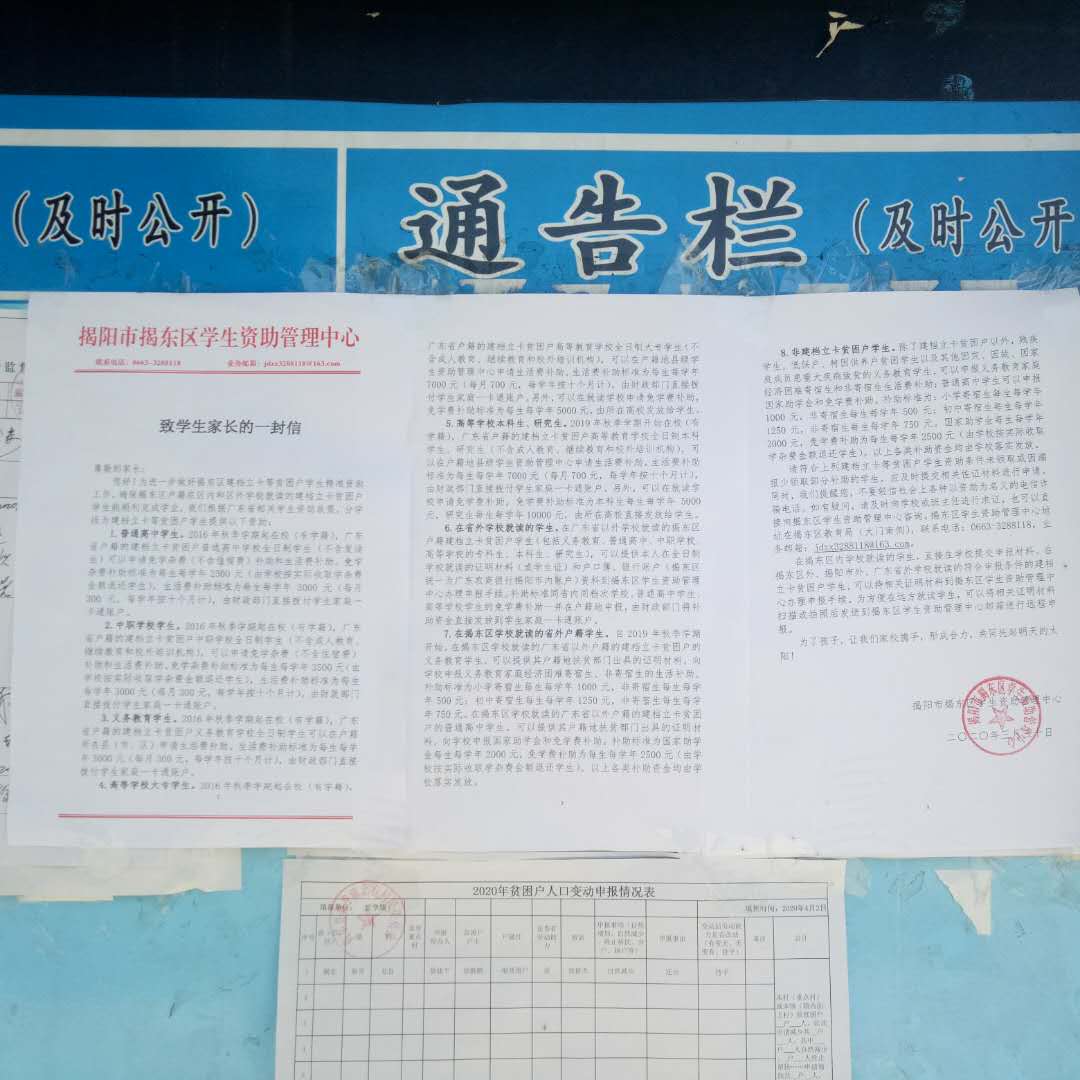 （及时公开）
通告栏
（及时公开
揭阳市揭东区学生资助管理中心
联系电话：0663-3288118 业务邮箱：jdxx3288118@163.com
致学生家长的一封信
尊敬的家长：
您好！为进一步做好揭东区建档立卡等贫困户学生精准资助
工作，确保揭东区户籍在区内和区外学校就读的建档立卡贫困户
学生能顺利完成学业，我们根据广东省相关学生资助政策，分学
段为建档立卡等贫困户学生提供以下资助：
1.普通高中学生。2016年秋季学期起在校（有学籍），广东
省户籍的建档立卡贫困户普通高中学校全日制学生（不含复读
生）可以申请免学杂费（不含住宿费）补助和生活费补助。免学
杂费补助标准为每生每学年2500元（由学校按实际收取学杂费
金额退还学生），生活费补助标准为每生每学年3000元（每月
300元，每学年按十个月计），由财政部门直接拨付学生家庭一
卡通账户。
2.中职学校学生。2016年秋季学期起在校（有学籍），广东
省户籍的建档立卡贫困户中职学校全日制学生（不含成人教育、
继续教育和校外培训机构），可以申请免学杂费（不含住宿费）
补助和生活费补助。免学杂费补助标准为每生每学年3500元（由
学校按实际收取学杂费金额退还学生），生活费补助标准为每生
每学年3000元（每月300元，每学年按十个月计），由财政部门
直接拨付学生家庭一卡通账户。
3.义务教育学生。2016年秋季学期起在校（有学籍），广东
省户籍的建档立卡贫困户义务教育学校全日制学生可以在户籍
所在县（市、区）申请生活费补助，生活费补助标准为每生每学
年3000元（每月300元，每学年按十个月计），由财政部门直接
拨付学生家庭一卡通账户。
4.高等学校大专学生。2016年秋季学期起在校（有学籍），
广东省户籍的建档立卡贫困户高等教育学校全日制大专学生（不
含成人教育、继续教育和校外培训机构），可以在户籍地县级学
生资助管理中心申请生活费补助，生活费补助标准为每生每学年
7000元（每月700元，每学年按十个月计），由财政部门直接拨
付学生家庭一卡通账户。另外，可以在就读学校申请免学费补助，
免学费补助标准为每生每学年5000元，由所在高校发放给学生。
5.高等学校本科生、研究生。2019年秋季学期开始在校（有
学籍），广东省户籍的建档立卡贫困户高等教育学校全日制本科
学生、研究生（不含成人教育、继续教育和校外培训机构），可
以在户籍地县级学生资助管理中心申请生活费补助，生活费补助
标准为每生每学年7000元（每月700元，每学年按十个月计），
由财政部门直接拨付学生家庭一卡通账户。另外，可以在就读学
校申请免学费补助，免学费补助标准为本科生每生每学年5000
元，研究生每生每学年10000元，由所在高校直接发放给学生。
6.在省外学校就读的学生。在广东省以外学校就读的揭东区
户籍建档立卡贫困户学生（包括义务教育、普通高中、中职学校、
高等学校的专科生、本科生、研究生），可以提供本人在全日制
学校就读的证明材料（或学生证）和户口簿、银行账户（揭东区
统一为广东农商银行揭阳市内账户）资料到揭东区学生资助管理
中心办理申报手续，补助标准同省内同档次学校。普通高中学生、
高等学校学生的免学费补助一并在户籍地申报，由财政部门将补
助资金直接发放到学生家庭一卡通账户。
7.在揭东区学校就读的省外户籍学生。自2019年秋季学期
开始，在揭东区学校就读的广东省以外户籍的建档立卡贫困户的
义务教育学生，可以提供其户籍地扶贫部门出具的证明材料，向
学校申报义务教育家庭经济困难寄宿生、非寄宿生的生活补助，
补助标准为小学寄宿生每生每学年1000元，非寄宿生每生每学
年500元；初中寄宿生每生每学年1250元，非寄宿生每生每学
年750元。在揭东区学校就读的广东省以外户籍的建档立卡贫困
户的普通高中学生，可以提供其户籍地扶贫部门出具的证明材
料，向学校申报国家助学金和免学费补助，补助标准为国家助学
金每生每学年2000元，免学费补助为每生每学年2500元（由学
校按实际收取学杂费金额退还学生）。以上各类补助资金均由学
校落实发放。
8.非建档立卡贫困户学生。除了建档立卡贫困户以外，残疾
学生、低保户、特困供养户贫困学生以及其他因灾、因故、因家
庭成员患重大疾病致贫的义务教育学生，可以申报义务教育家庭
经济困难寄宿生和非寄宿生生活费补助；普通高中学生可以申报
国家助学金和免学费补助。补助标准为：小学寄宿生每生每学年
1000元，非寄宿生每生每学年500元；初中寄宿生每生每学年
1250元，非寄宿生每生每学年750元。国家助学金每生每学年
2000元，免学费补助为每生每学年2500元（由学校按实际收取
学杂费金额退还学生）。以上各类补助资金均由学校落实发放。
请符合上列建档立卡等贫困户学生资助条件未领取或因漏
报少领取部分补助的学生，应及时提交相关佐证材料进行申请。
同时，我们提醒您，不要轻信社会上各种以资助为名义的电信诈
骗电话。如有疑问，请及时向学校或班主任进行求证，也可以直
接向揭东区学生资助管理中心咨询。揭东区学生资助管理中心地
址在揭东区教育局（大门南侧），联系电话：0663-3288118，业
务邮箱：jdxx3288118@163.com。
在揭东区内学校就读的学生，直接在学校提交申报材料。在
揭东区外、揭阳市外、广东省外学校就读的符合申报条件的建档
立卡贫困户学生，可以将相关证明材料到揭东区学生资助管理中
心办理申报手续。为方便在远方就读学生，可以将相关证明材料
扫描或拍照后发送到揭东区学生资助管理中心邮箱进行远程申
报。
为了孩子，让我们家校携手，形成合力，共同托起明天的太
阳！
揭阳市揭东区学生资助管理中心
二〇二〇年三月十日
2020年贫困户人口变动申报情况表
填报时间：2020年4月2日
序号
户属性
备注
合计